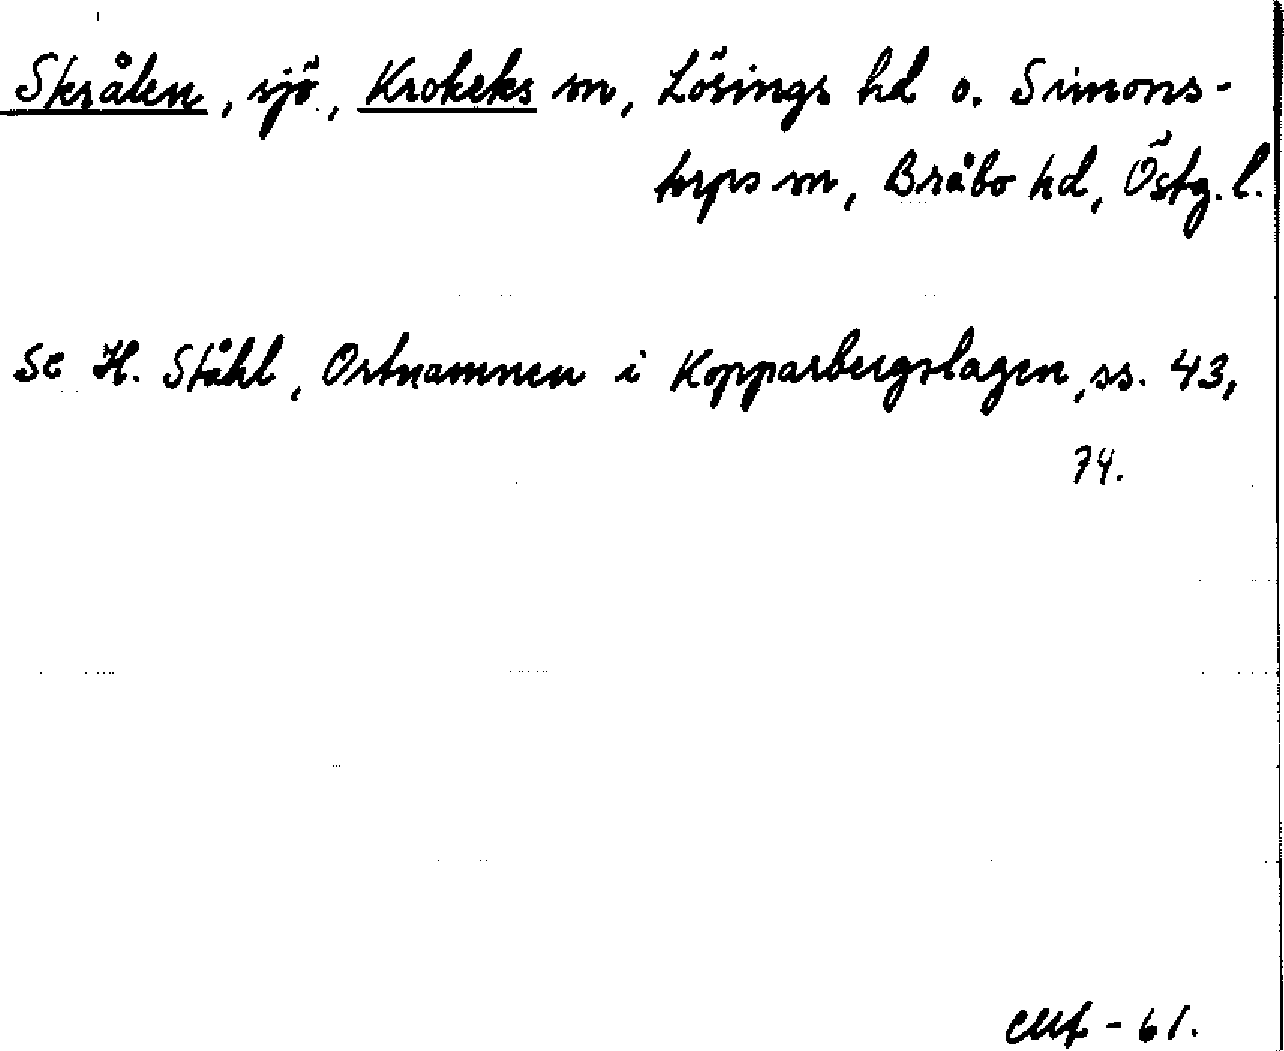 Skrålen, sjö, Krokeks sn, Lösings hd o. Simons-
torps sn, Bråbo hd, Östg. l.
Se H. Ståhl, Ortnamnen i Kopparbergslagen, ss. 43,
74.
-61.